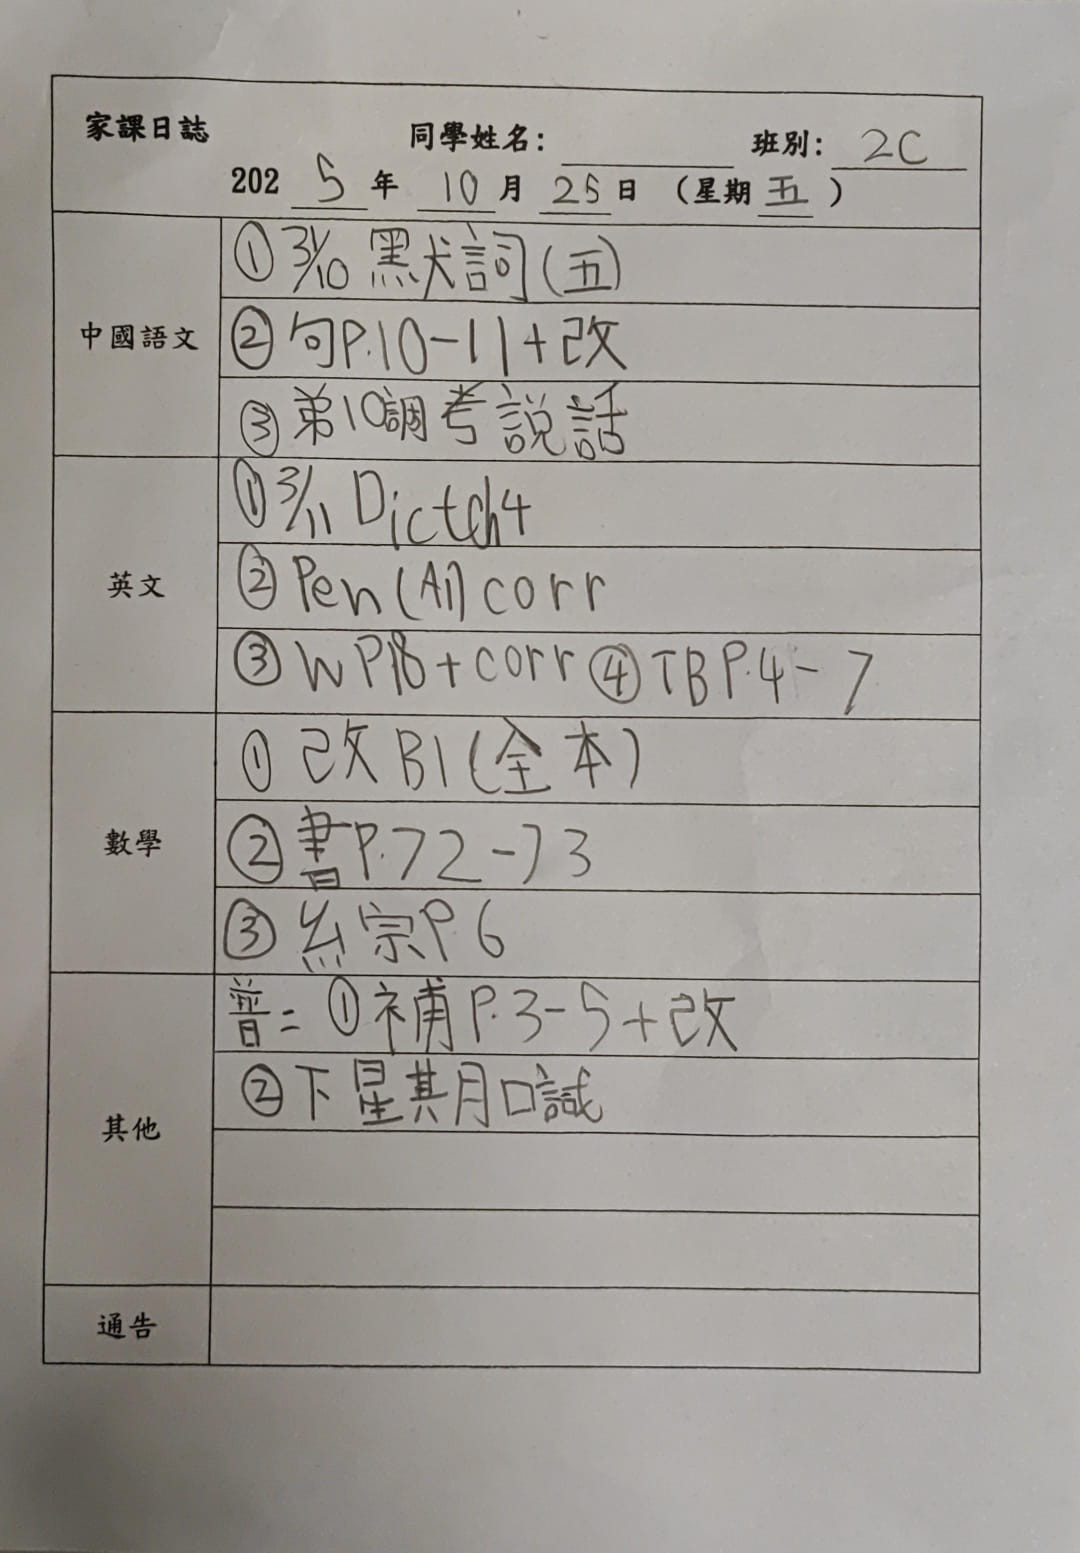 家課日誌 同學姓名: 班別: 2C
2025年10月25日 (星期五)
中國語文
① 31/10 黑犬詞(五)
② 句P.10-11+改
③ 第10調考說話
英文
① 3/11 Dictch4
② Pen(A1)corr
③ WP18+corr ④ TBP.4-7
數學
① 改B1(全本)
② 書P.72-73
③ 糸宗P6
其他
普= ① 補P.3-5+改
② 下星其月口試
通告